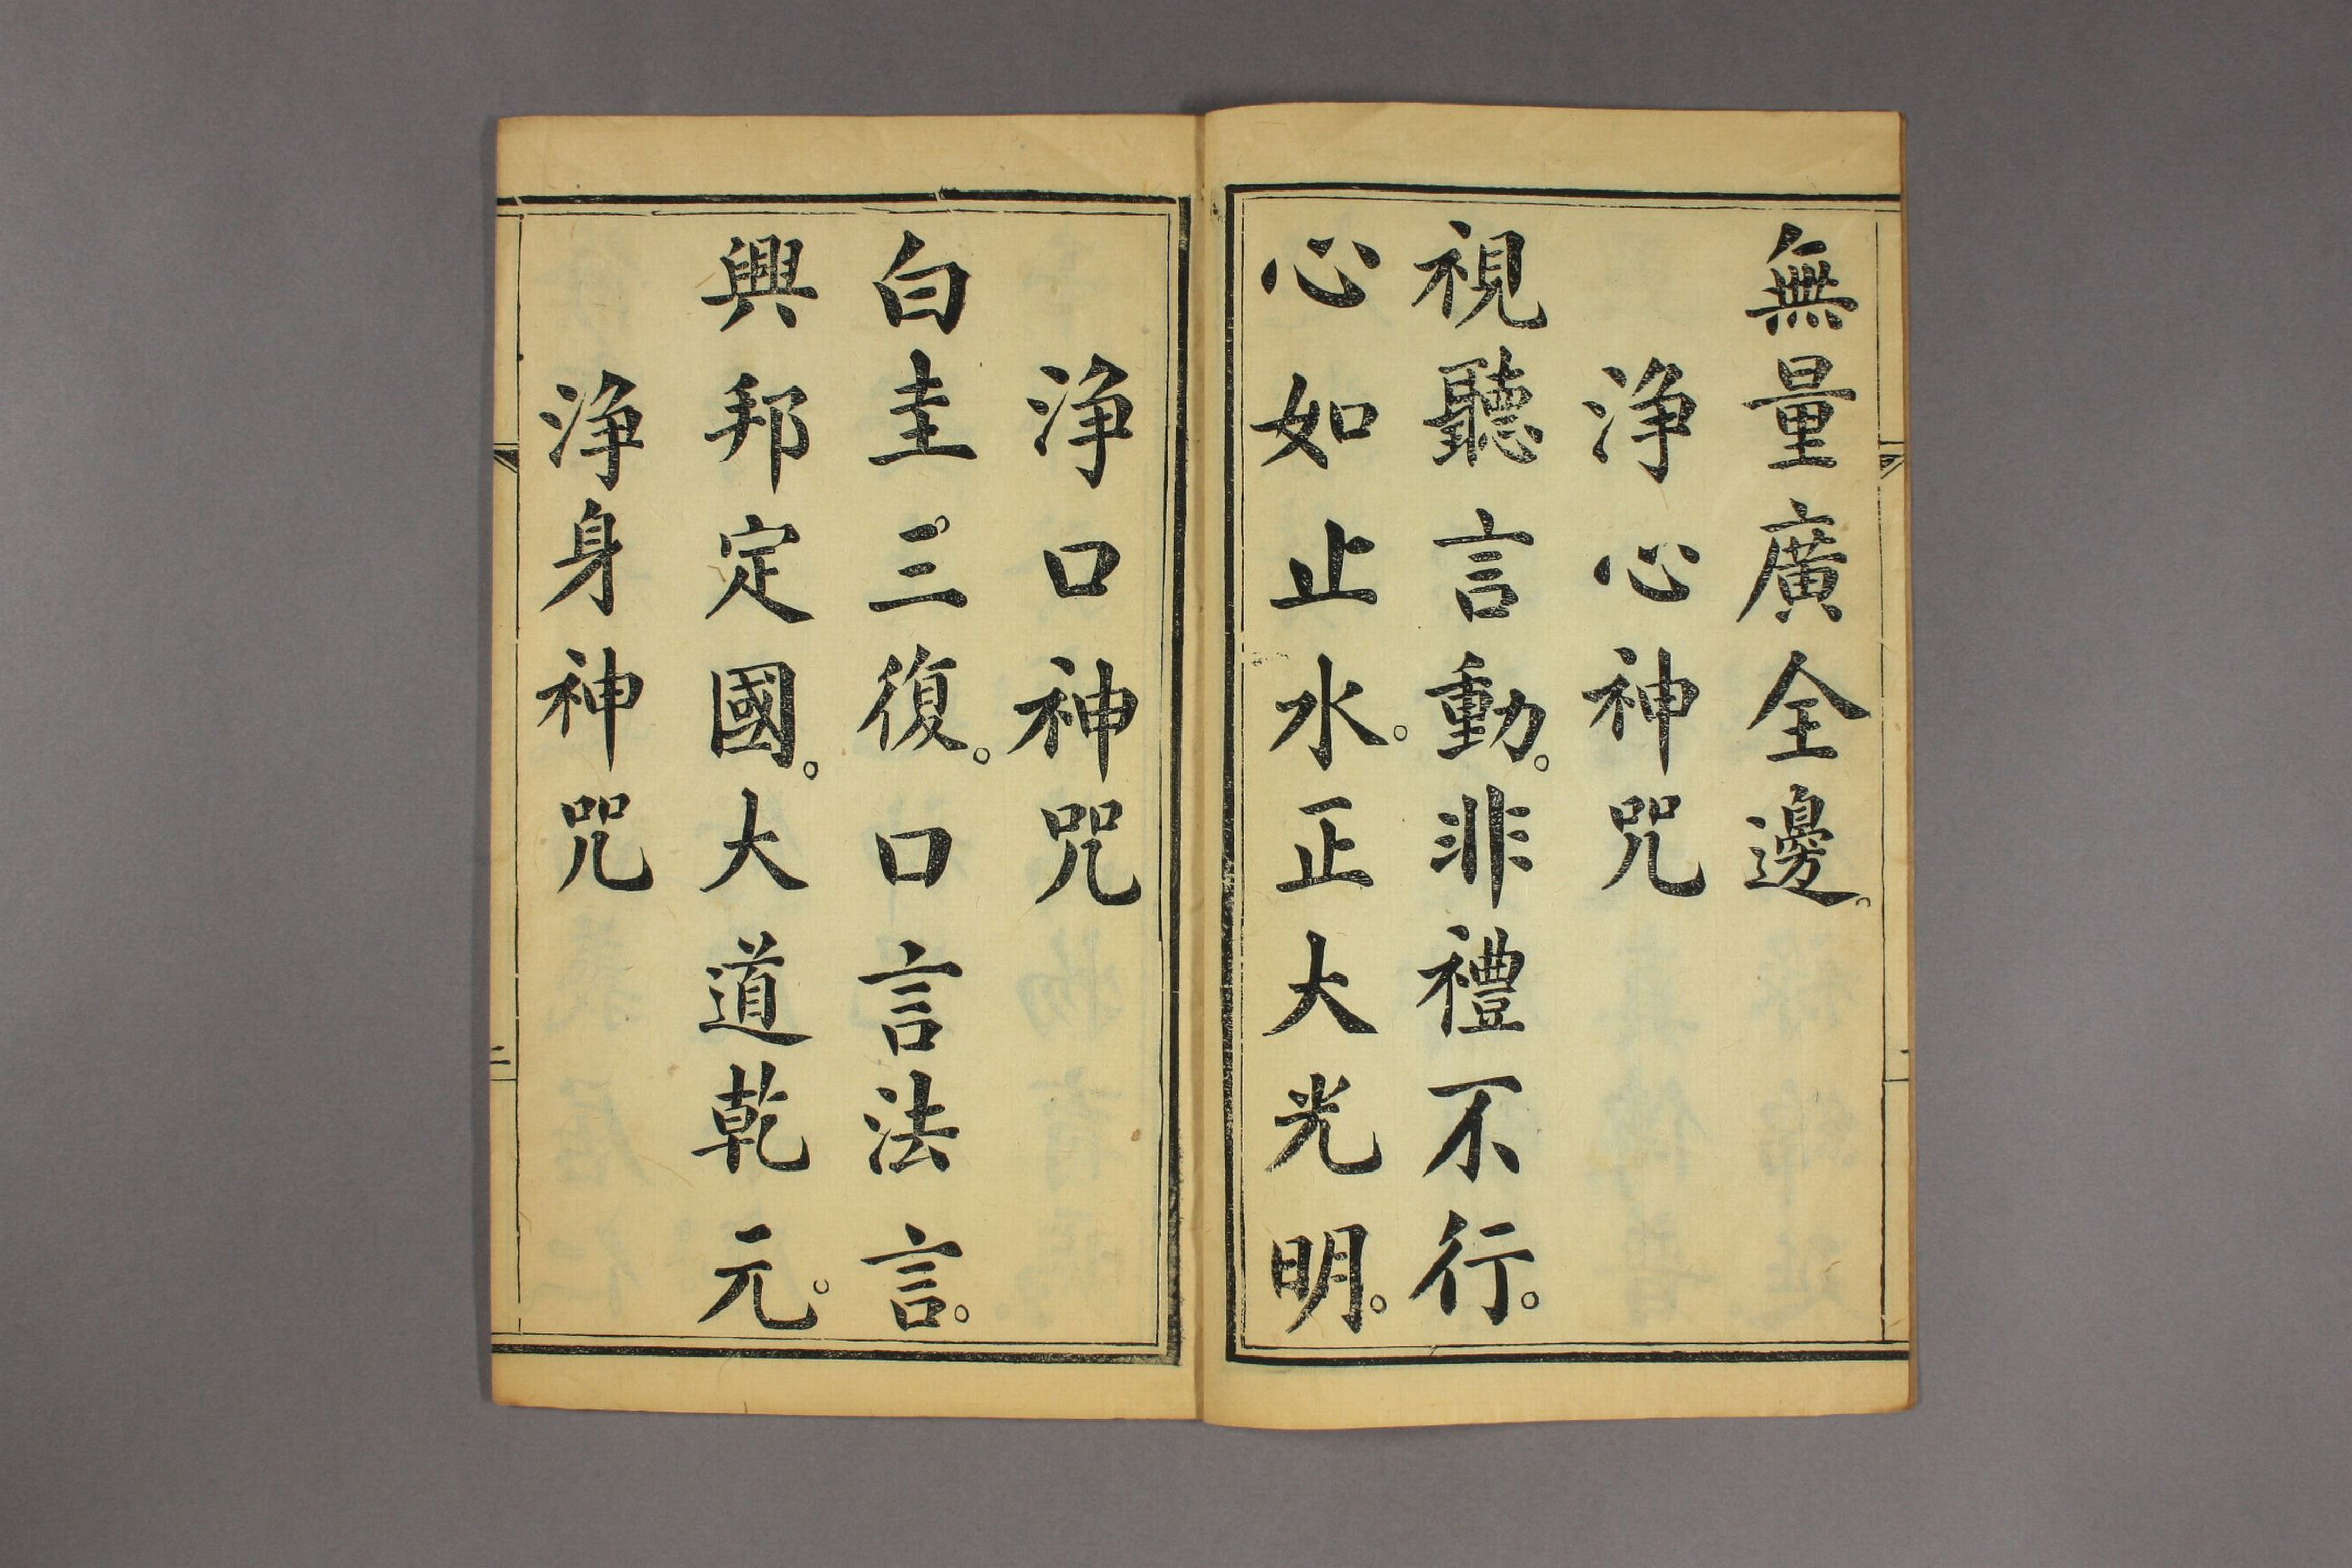 無量廣全邊。
淨心神咒
視聽言動。非禮不行。
心如止水。正大光明。
淨口神咒
白圭三復。口言法言。
興邦定國。大道乾元。
淨身神咒
二